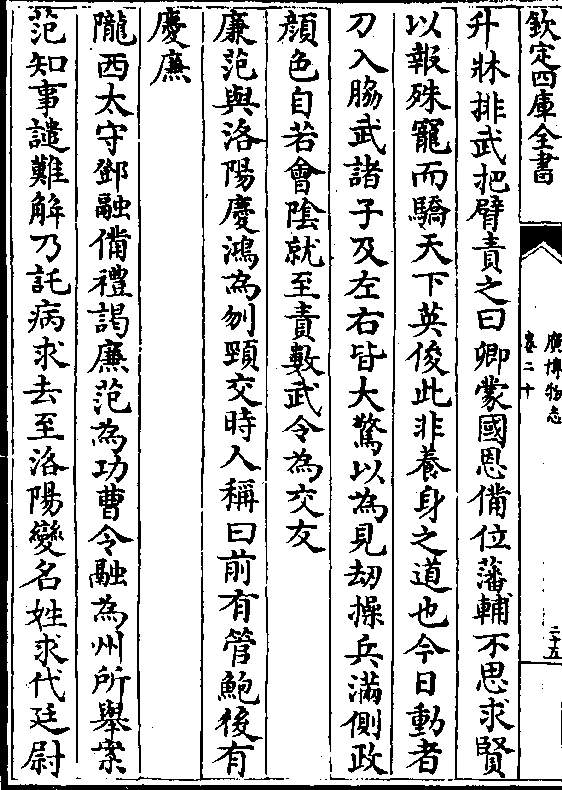 欽定四庫全書
廣博物志
卷二十
二十五
升牀排武把臂責之曰卿蒙國恩備位藩輔不思求賢
以報殊寵而驕天下英俊此非養身之道也今日動者
刀入脇武諸子及左右皆大驚以為見劫操兵滿側政
顔色自若會隂就至責數武令為交友
廉范與洛陽慶鴻為刎頸交時人稱曰前有管鮑後有
慶廉
隴西太守鄧融備禮謁廉范為功曹令融為州所舉案
范知事譴難解乃託病求去至洛陽變名姓求代廷尉